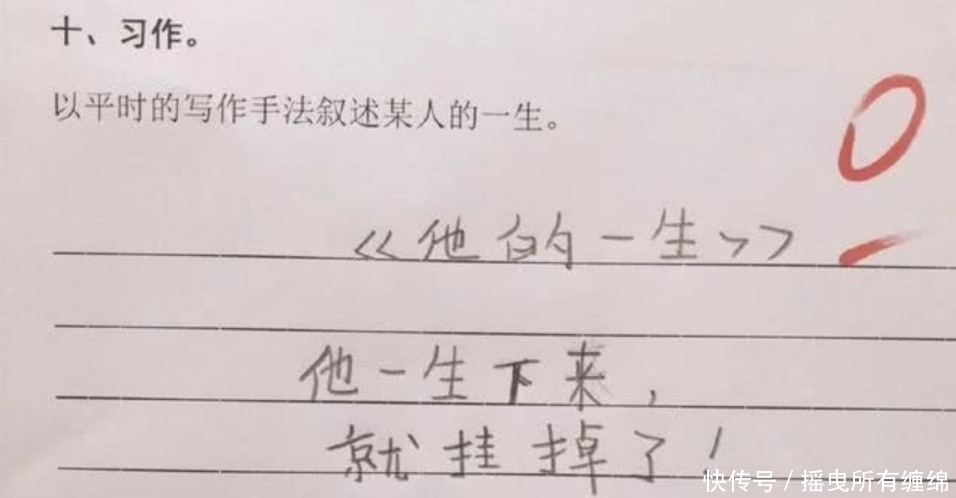 十、习作。
以平时的写作手法叙述某人的一生。
0
《他的一生》
他一生下来,
就挂掉了!
快传号/摇曳所有缠绵